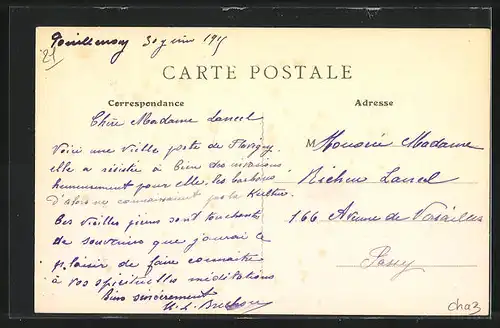 Pouillenay 30 juin 1915
21
CARTE POSTALE
Correspondance
Adresse
Chère Madame Lancel
Voici une vieille porte de Flavigny
elle a résisté à bien des invasions
heureusement pour elle, les barbares
D'alors ne connaissaient pas la Kultur.
Ces vieilles pierres sont touchantes
de souvenirs que j'aurai le
plaisir de faire connaître
à vos spirituelles méditations
Bien sincèrement
M Monsieur Madame
Lancel
166 Avenue de Versailles
Passy
cha3